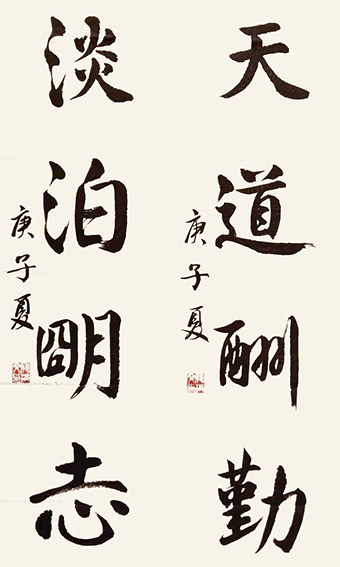 天道酬勤
庚子夏
淡泊明志
庚子夏